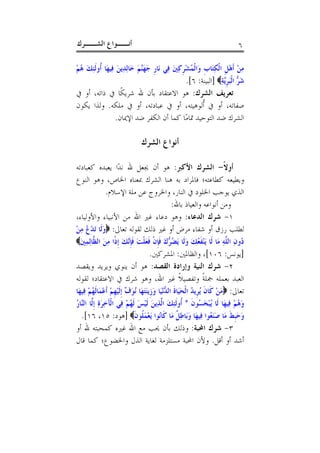 ٦ أنـــــواع الشـــــــرك
مِنْ أَهْلِ الْكِتَابِ وَالْمُشْرِكِينَ فِي نَارِ جَهَنَّمَ خَالِدِينَ فِيهَا أُولَئِكَ هُمْ
شَرُّ الْبَرِيَّةِ﴾ [البينة: ٦].
تعريف الشرك: هو الاعتقاد بأن لله شريكًا في ذاته، أو في
صفاته، أو في أُلوهيته، أو في عبادته، أو في ملكه. ولذا يكون
الشرك ضد التوحيد تمامًا كما أن الكفر ضد الإيمان.
أنواع الشرك
أولاً- الشرك الأكبر: هو أن يجعل لله ندًا يعبده كعبادته
ويطيعه كطاعته؛ فالمراد به هنا الشرك بمعناه الخاص، وهو النوع
الذي يوجب الخلود في النار، والخروج عن ملة الإسلام.
ومن أنواعه والعياذ بالله:
١- شرك الدعاء: وهو دعاء غير الله من الأنبياء والأولياء،
لطلب رزق أو شفاء مرض أو غير ذلك لقوله تعالى: ﴿وَلَا تَدْعُ مِنْ
دُونِ اللَّهِ مَا لَا يَنْفَعُكَ وَلَا يَضُرُّكَ فَإِنْ فَعَلْتَ فَإِنَّكَ إِذًا مِنَ الظَّالِمِينَ﴾
[يونس: ١٠٦]، والظالمين: المشركين.
٢- شرك النية وإرادة القصد: هو أن ينوي ويريد ويقصد
العبد بعمله جملةً وتفصيلاً غير الله، وهو شرك في الاعتقاد؛ لقوله
تعالى: ﴿مَنْ كَانَ يُرِيدُ الْحَيَاةَ الدُّنْيَا وَزِينَتَهَا نُوَفِّ إِلَيْهِمْ أَعْمَالَهُمْ فِيهَا
وَهُمْ فِيهَا لَا يُبْخَسُونَ * أُولَئِكَ الَّذِينَ لَيْسَ لَهُمْ فِي الْآَخِرَةِ إِلَّا النَّارُ
وَحَبِطَ مَا صَنَعُوا فِيهَا وَبَاطِلٌ مَا كَانُوا يَعْمَلُونَ﴾ [هود: ١٥، ١٦].
٣- شرك المحبة: وذلك بأن يحب مع الله غيره كمحبته لله أو
أشد أو أقل. ولأن المحبة مستلزمة لغاية الذل والخضوع؛ كما قال